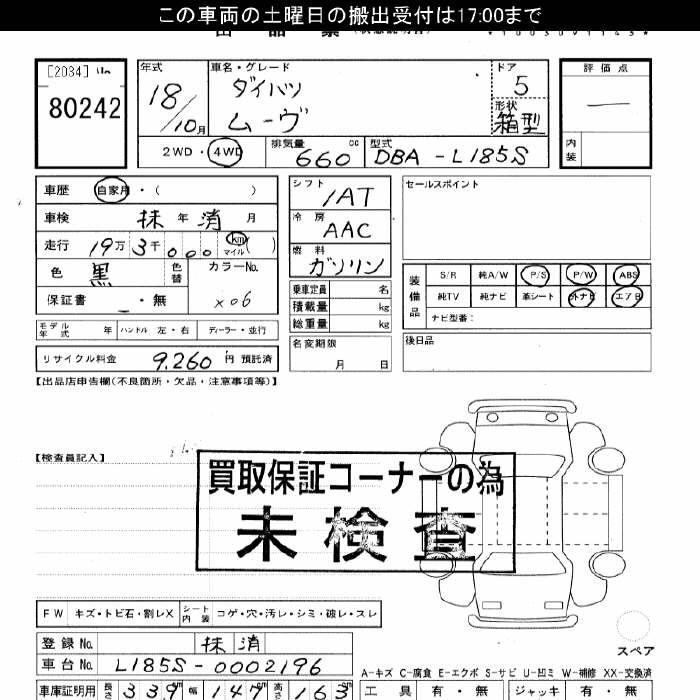 この車両の土曜日の搬出受付は17:00まで
[2034]
80242
年式 車名・グレード ドア 評価点
18/10月 ダイハツ 5 —
ムーヴ 形状 箱型
2WD・4WD 排気量 660 cc 型式 DBA-L185S 内装
車歴 自家用・( )
車検 抹年消月
走行 19万3千000 km マイル ( )
色 黒 色替 カラーNo.
保証書 ・無 X06
モデル年式 年 ハンドル 左・右 ディーラー・並行
リサイクル料金 9,260円 預託済
シフト IAT
冷房 AAC
燃料 ガソリン
乗車定員 名
積載量 kg
総重量 kg
名変期限
月 日
セールスポイント
装備品 S/R 純A/W P/S P/W ABS
純TV 純ナビ 革シート 外ナビ エアB
ナビ型番:
後日品
【出品店申告欄(不良箇所・欠品・注意事項等)】
【検査員記入】
買取保証コーナーの為
未検査
FW キズ・トビ石・割レX シート内装 コゲ・穴・汚レ・シミ・破レ・スレ
スペア
登録No. 抹消
車台No. L185S-0002196
A-キズ C-腐食 E-エクボ S-サビ U-凹ミ W-補修 XX-交換済
車庫証明用 長さ 339 幅 147 高さ 163
工具 有・無 ジャッキ 有・無